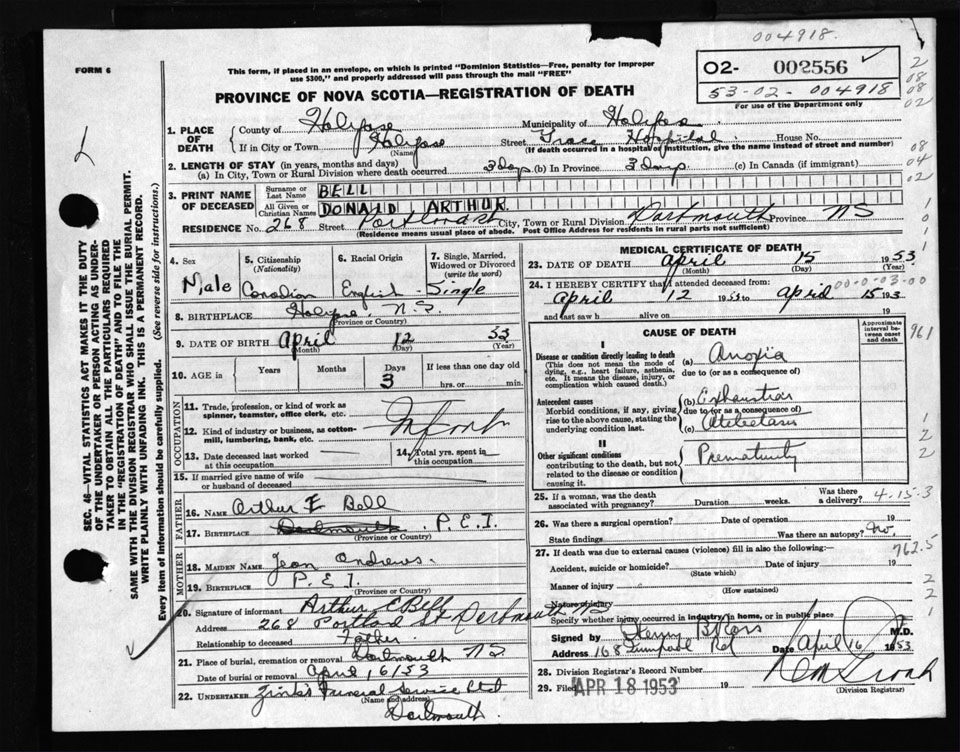 004918.
FORM 6
This form, if placed in an envelope, on which is printed "Dominion Statistics—Free, penalty for improper
use $300," and properly addressed will pass through the mail "FREE"
O2- 002556
53-02-004918
For use of the Department only
PROVINCE OF NOVA SCOTIA—REGISTRATION OF DEATH
1. PLACE OF DEATH
County of Halifax Municipality of Halifax
If in City or Town Halifax Street Grace Hospital House No.
(Name) (If death occurred in a hospital or institution, give the name instead of street and number)
2. LENGTH OF STAY (in years, months and days)
(a) In City, Town or Rural Division where death occurred 3 Days (b) In Province 3 Days (c) In Canada (if immigrant)
3. PRINT NAME OF DECEASED
Surname or Last Name BELL
All Given or Christian Names DONALD ARTHUR
RESIDENCE No. 268 Street Portland St City, Town or Rural Division Dartmouth Province NS
(Residence means usual place of abode. Post Office Address for residents in rural parts not sufficient)
4. Sex Male
5. Citizenship (Nationality) Canadian
6. Racial Origin English
7. Single, Married, Widowed or Divorced (write the word) Single
8. BIRTHPLACE Halifax, N.S.
(Province or Country)
9. DATE OF BIRTH April 12 53
(Month) (Day) (Year)
10. AGE in Years Months Days 3 If less than one day old
hrs. or min.
OCCUPATION
11. Trade, profession, or kind of work as spinner, teamster, office clerk, etc.
Infant
12. Kind of industry or business, as cotton-mill, lumbering, bank, etc.
13. Date deceased last worked at this occupation
14. Total yrs. spent in this occupation
15. If married give name of wife or husband of deceased
FATHER
16. NAME Arthur E Bell
17. BIRTHPLACE Dartmouth P.E.I.
(Province or Country)
MOTHER
18. MAIDEN NAME Jean Andrews.
19. BIRTHPLACE P.E.I.
(Province or Country)
20. Signature of informant Arthur E Bell
Address 268 Portland St Dartmouth NS
Relationship to deceased Father.
21. Place of burial, cremation or removal Dartmouth NS
Date of burial or removal April, 16/53
22. UNDERTAKER Zink's Funeral Service Ltd
(Name and address)
Dartmouth.
MEDICAL CERTIFICATE OF DEATH
23. DATE OF DEATH April 15 1953
(Month) (Day) (Year)
24. I HEREBY CERTIFY that I attended deceased from:
00-0-03-00
April 12 1953 to April 15 193
and last saw h alive on 19
CAUSE OF DEATH
Approximate interval between onset and death
961
I
Disease or condition directly leading to death
(This does not mean the mode of dying, e.g., heart failure, asthenia, etc. It means the disease, injury, or complication which caused death.)
(a) Anoxia
due to (or as a consequence of)
Antecedent causes
Morbid conditions, if any, giving rise to the above cause, stating the underlying condition last.
(b) Exhaustion
due to (or as a consequence of)
(c) Atelectasis
II
Other significant conditions
contributing to the death, but not related to the disease or condition causing it.
Prematurity
25. If a woman, was the death associated with pregnancy? Duration weeks. Was there a delivery?
4-15-3
26. Was there a surgical operation? Date of operation 19
State findings Was there an autopsy? No.
27. If death was due to external causes (violence) fill in also the following:—
762.5
Accident, suicide or homicide? Date of injury 19
(State which)
Manner of injury
(How sustained)
Nature of injury
Specify whether injury occurred in industry, in home, or in public place
Signed by Henry B Ross M.D.
Address 168 Date April 16 1953
28. Division Registrar's Record Number
29. Filed APR 18 1953 19
(Division Registrar)
SEC. 46—VITAL STATISTICS ACT MAKES IT THE DUTY
OF THE UNDERTAKER OR PERSON ACTING AS UNDER-
TAKER TO OBTAIN ALL THE PARTICULARS REQUIRED
IN THE "REGISTRATION OF DEATH" AND TO FILE THE
SAME WITH THE DIVISION REGISTRAR WHO SHALL ISSUE THE BURIAL PERMIT.
WRITE PLAINLY WITH UNFADING INK. THIS IS A PERMANENT RECORD.
Every item of information should be carefully supplied. (See reverse side for instructions.)